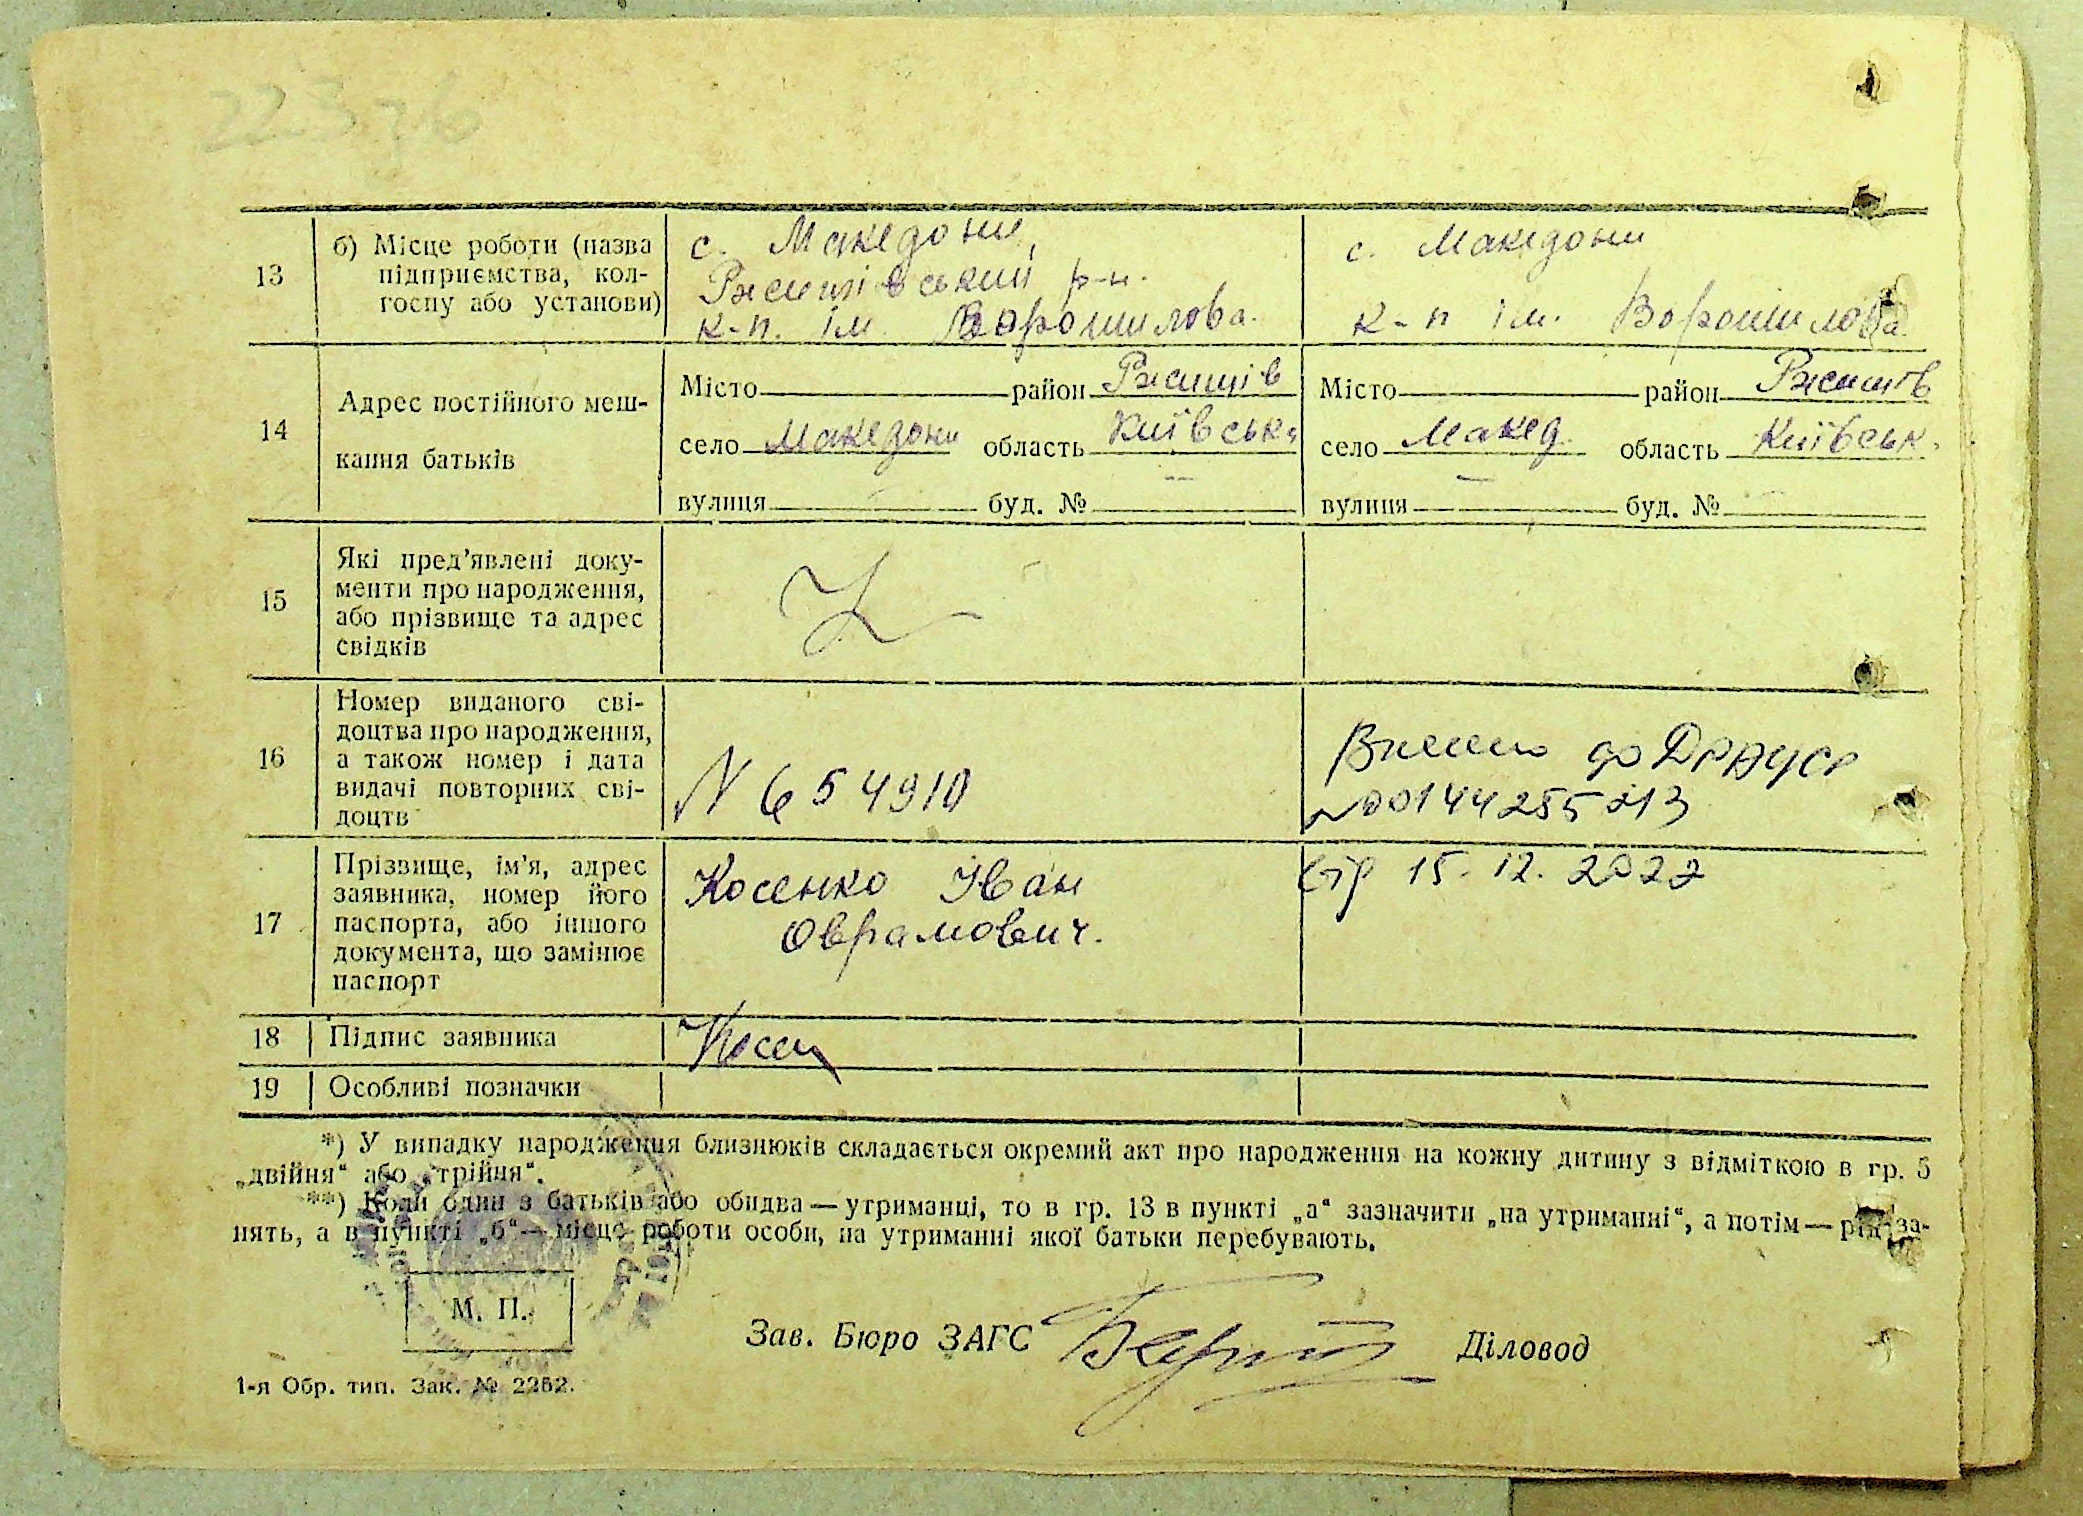 22.3.76
13
б) Місце роботи (назва
підприємства, кол-
госпу або установи)
с. Македони,
Ржищівський р-н.
к-п. ім. Ворошилова.
с. Македони
к-п ім. Ворошилова
14
Адрес постійного меш-
кання батьків
Місто район Ржищів
село Македони область Київськ
вулиця буд. №
Місто район Ржищів
село Макед. область Київськ.
вулиця буд. №
15
Які пред’явлені доку-
менти про народження,
або прізвище та адрес
свідків
16
Номер виданого сві-
доцтва про народження,
а також номер і дата
видачі повторних сві-
доцтв
N 654910
Внесено до ДРАЦСГ
№00144255213
17
Прізвище, ім’я, адрес
заявника, номер його
паспорта, або іншого
документа, що замінює
паспорт
Косенко Іван
Оврамович.
15.12.2022
18
Підпис заявника
Косен
19
Особливі позначки
*) У випадку народження близнюків складається окремий акт про народження на кожну дитину з відміткою в гр. 5
„двійня“ або „трійня“.
**) Коли один з батьків або обидва — утриманці, то в гр. 13 в пункті „а“ зазначити „на утриманні“, а потім — рід за-
нять, а в пункті „б“ — місце роботи особи, на утриманні якої батьки перебувають.
М. П.
Зав. Бюро ЗАГС
Діловод
1-я Обр. тип. Зак. № 2262.